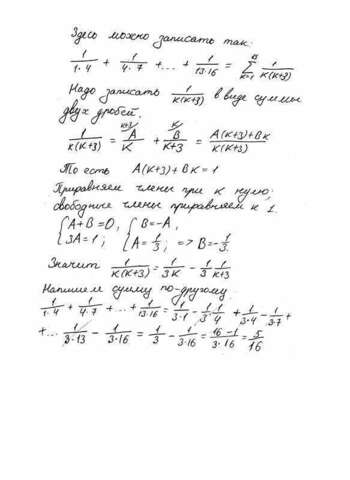 Здесь можно записать так:
1/(1·4) + 1/(4·7) + ... + 1/(13·16) = ∑_{k=1}^{13} 1/(k(k+3))
Надо записать 1/(k(k+3)) в виде суммы
двух дробей.
1/(k(k+3)) = A^{k+3}/k + B^{k}/(k+3) = (A(k+3)+Bk)/(k(k+3))
То есть A(k+3)+Bk=1
Приравняем члены при k нулю,
свободные члены приравняем к 1.
{A+B=0, {B=-A,
{3A=1; {A=1/3; => B=-1/3.
Значит 1/(k(k+3)) = 1/(3k) - 1/3 · 1/(k+3)
Напишем сумму по-другому:
1/(1·4) + 1/(4·7) + ... + 1/(13·16) = 1/(3·1) - 1/3 · 1/4 + 1/(3·4) - 1/(3·7) +
+... 1/(3·13) - 1/(3·16) = 1/3 - 1/(3·16) = (16-1)/(3·16) = 5/16